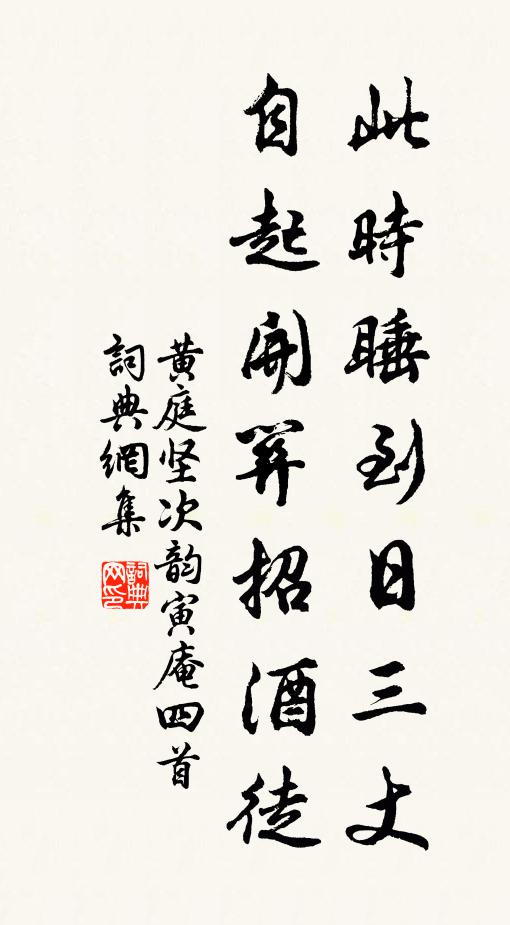 此時睡到日三丈
自起開關招酒徒
黄庭坚次韵寅庵四首
詞典網集
詞典网印